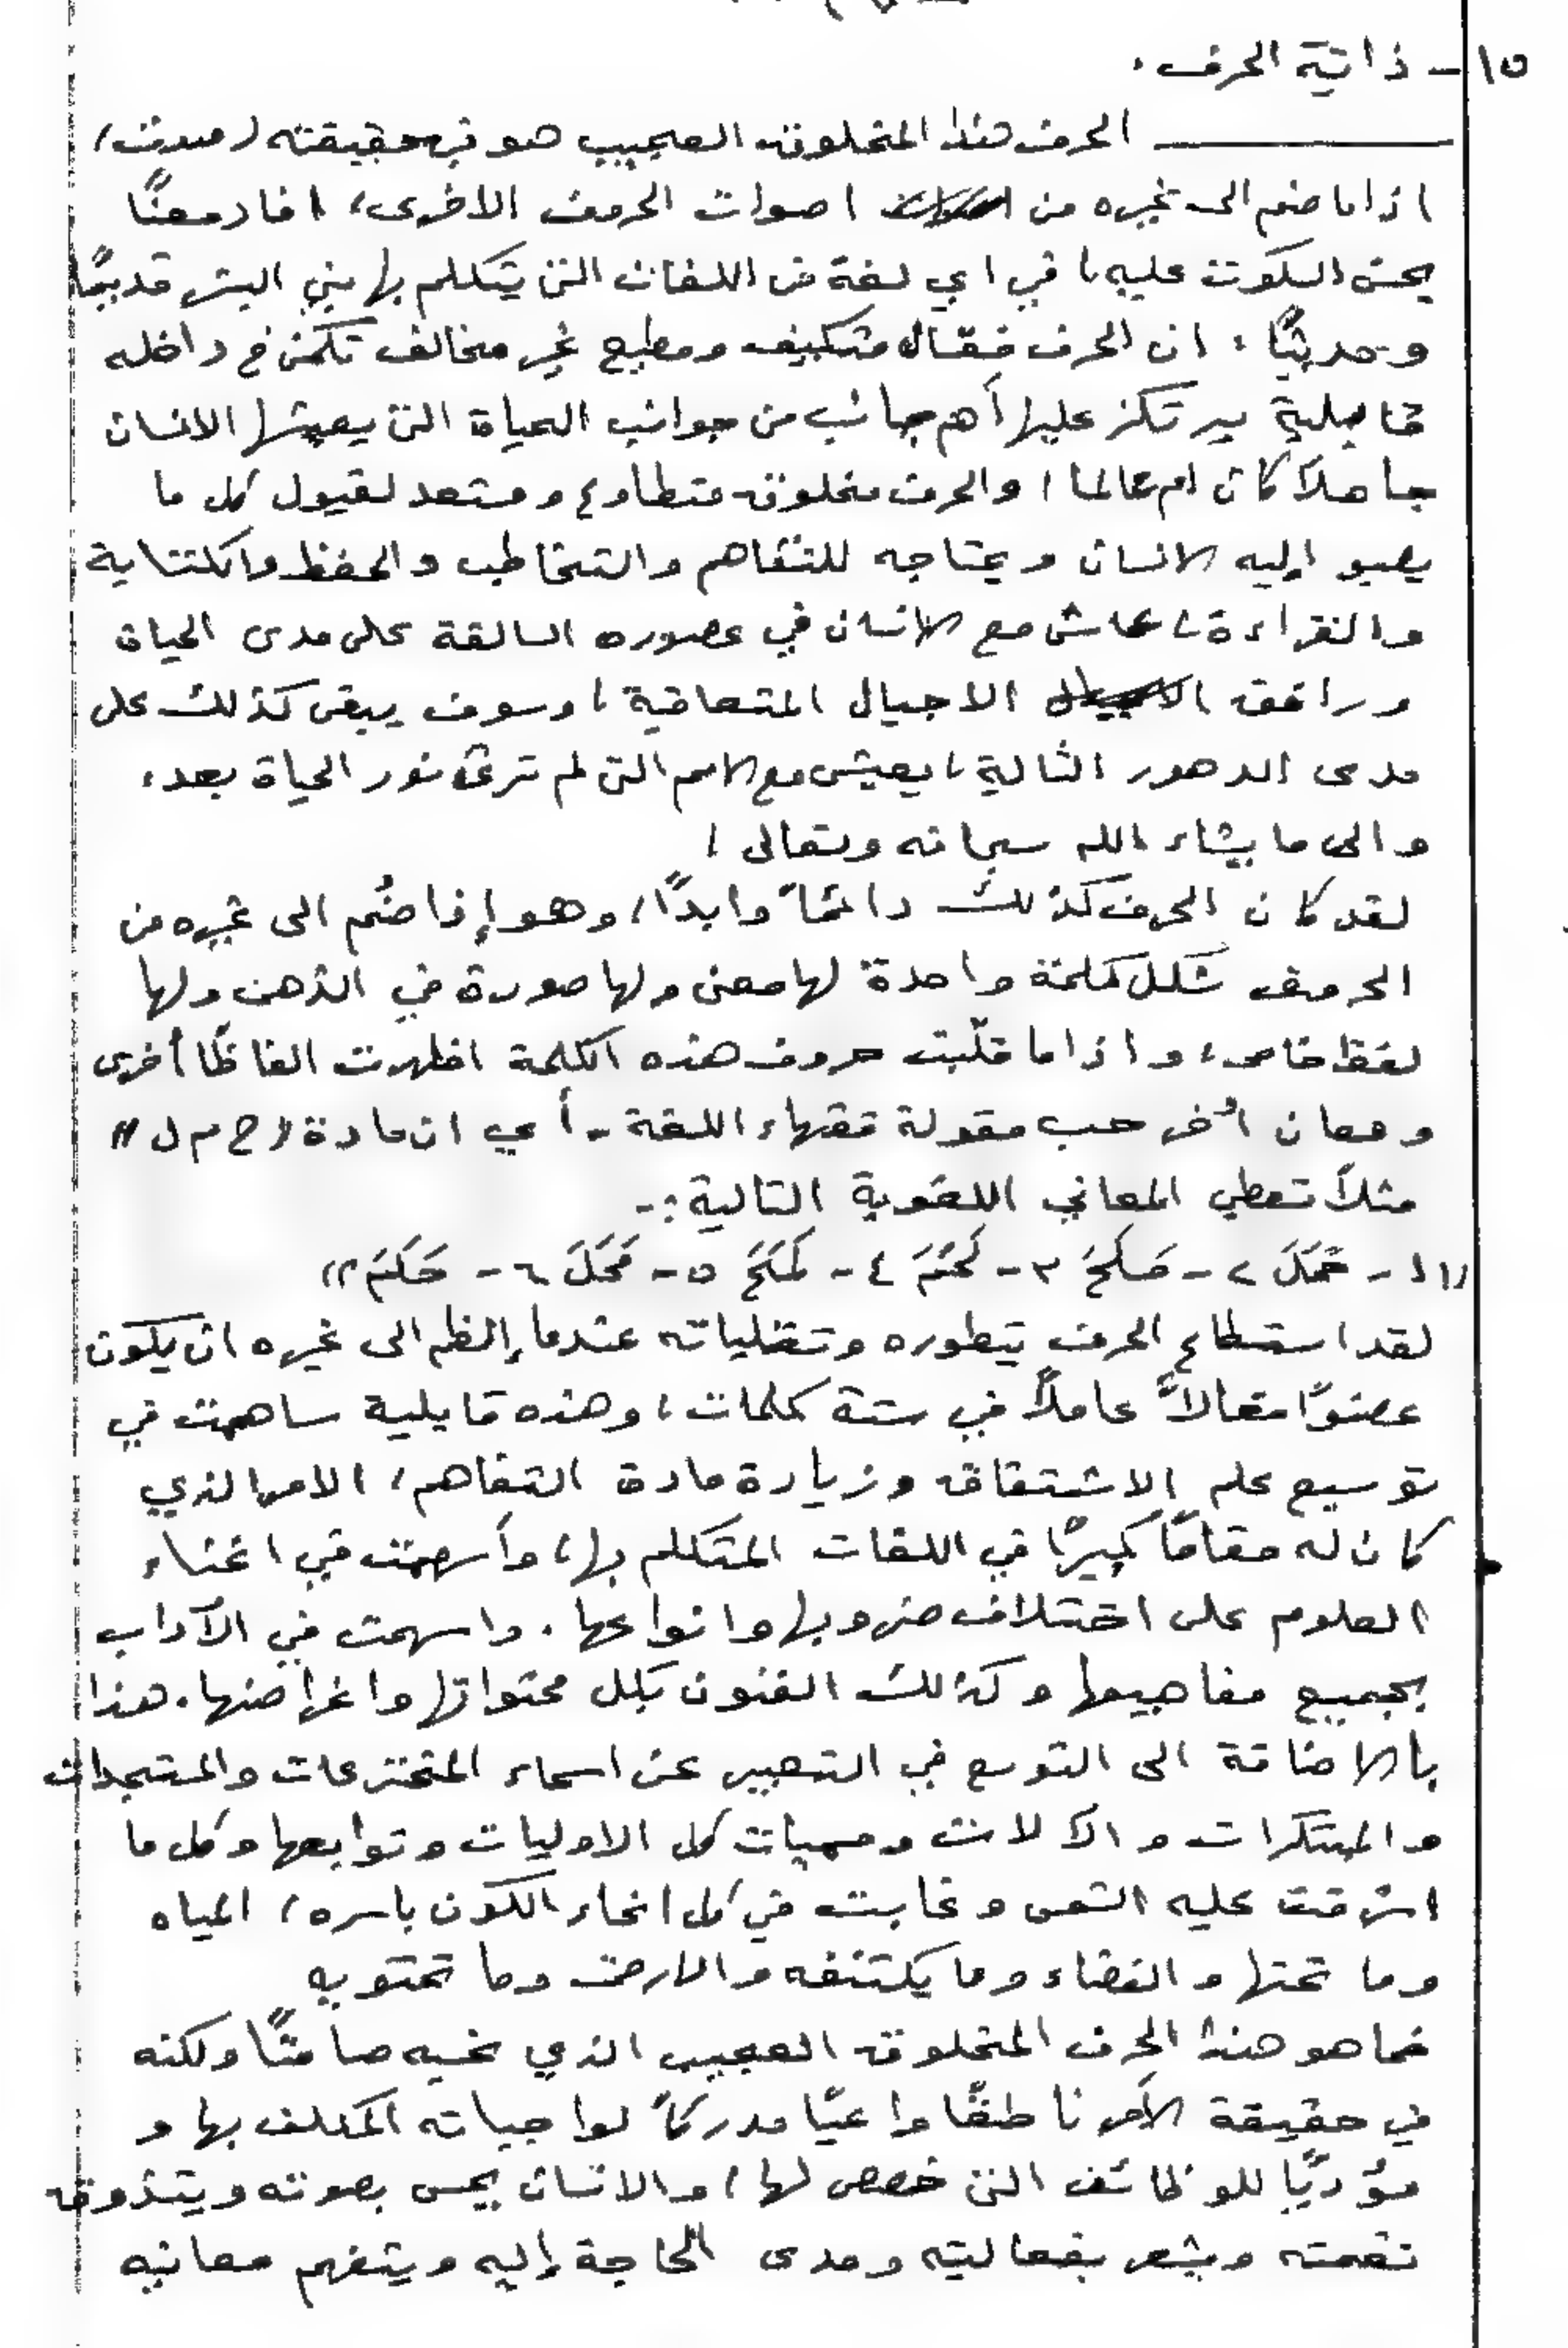 ١٥ - ذاتية الحرف .
الحرف هذا المخلوق العجيب هو في حقيقته (صوت)
اذا ما ضم الى غيره من اصوات الحروف الاخرى، افاد معنًا
يحسن السكوت عليه، في اي لغة من اللغات التي يتكلم بها بني البشر قديمًا
وحديثًا، ان الحرف فعّال متكيف ومطيع غير مخالف تكمن في داخله
قابلية يرتكز عليها أهم جانب من جوانب الحياة التي يعيشها الانسان
جاهلاً كان ام عالما، والحرف مخلوق متطاوع ومستعد لقبول كل ما
يصبو إليه الانسان ويحتاجه للتفاهم والتخاطب والحفظ والكتابة
والقراءة، عاش مع الانسان في عصوره السالفة على مدى الحياة
ورافق الاجيال المتعاقبة، وسوف يبقى كذلك على
مدى الدهور التالية، يعيش مع الامم التي لم ترى نور الحياة بعد،
والى ما يشاء الله سبحانه وتعالى،
لقد كان الحرف كذلك دائمًا وابدًا، وهو إذا ضُم الى غيره من
الحروف شكل كلمة واحدة لها معنى ولها صورة في الذهن ولها
لفظ خاص، واذا ما قلّبت حروف هذه الكلمة اظهرت الفاظًا أخرى
ومعان اُخر حسب مقولة فقهاء اللغة - أي ان مادة (ح م ل))
مثلاً تعطي المعاني اللغوية التالية :-
((١ - حَمَلَ ٢ - صَلَحَ ٣ - لَحَمَ ٤ - لَمَحَ ٥ - مَحَلَ ٦ - حَلَمَ))
لقد استطاع الحرف بتطوره وتقلباته عندما إنظم الى غيره ان يكون
عضوًا فعالاً عاملاً في ستة كلمات، وهذه قابلية ساهمت في
توسيع علم الاشتقاق وزيادة مادة التفاهم، الامر الذي
كان له مقامًا كبيرًا في اللغات المتكلم بها، وأسهمت في اغناء
العلوم على اختلاف ضروبها وانواعها . واسهمت في الآداب
بجميع مفاهيمها وكذلك الفنون بكل محتواتها واغراضها. هذا
بالاضافة الى التوسع في التعبير عن اسماء المخترعات والمستجدات
والمبتكرات والآلات ومسميات كل الاوليات وتوابعها وكل ما
اشرقت عليه الشمس وغابت في كل انحاء الكون باسره، المياه
وما تحتها والفضاء وما يكتنفه والارض وما تحتويه
فما هو هذا الحرف المخلوق العجيب الذي نحسبه صامتًا ولكنه
في حقيقة الأمر ناطقًا واعيًا مدركاً لواجباته المكلف بها و
مؤديًا للوظائف التي خصص لها، والانسان يحس بصوته ويتذوق
نغمته ويشعر بفعاليته ومدى الحاجة إليه ويتفهم معانيه